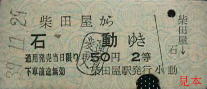 39.11.29
柴田屋から
石 動ゆき
通用発売当日限り 50円 2等
下車前途無効 柴田屋駅発行
柴田屋
↓
石動
見本